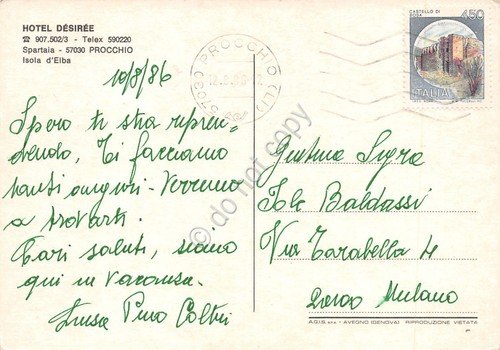 HOTEL DÉSIRÉE
☎ 907.502/3 - Telex 590220
Spartaia - 57030 PROCCHIO
Isola d'Elba
10/8/86
Spero ti stia ripren-
dendo, Ti facciamo
tanti auguri - Verremo
a trovarti.
Cari saluti, siamo
qui in vacanza.
Pino
57030 PROCCHIO (LI)
CASTELLO DI
450
ITALIA
Gentma Sigra
Baldassi
Via Tarabella 4
Milano
A.G.I.S. s.n.c. - AVEGNO (GENOVA) RIPRODUZIONE VIETATA
© do not copy